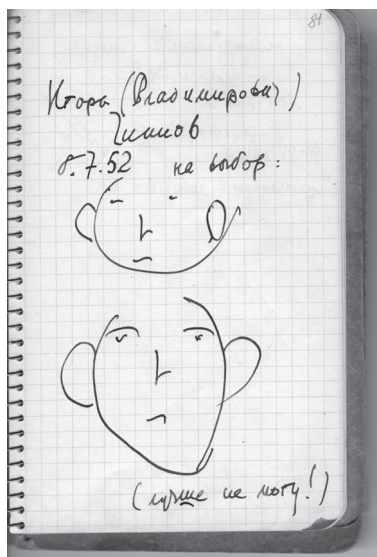 81
Игорь (Владимирович)
Зимов
8.7.52 на выбор:
(лучше не могу!)